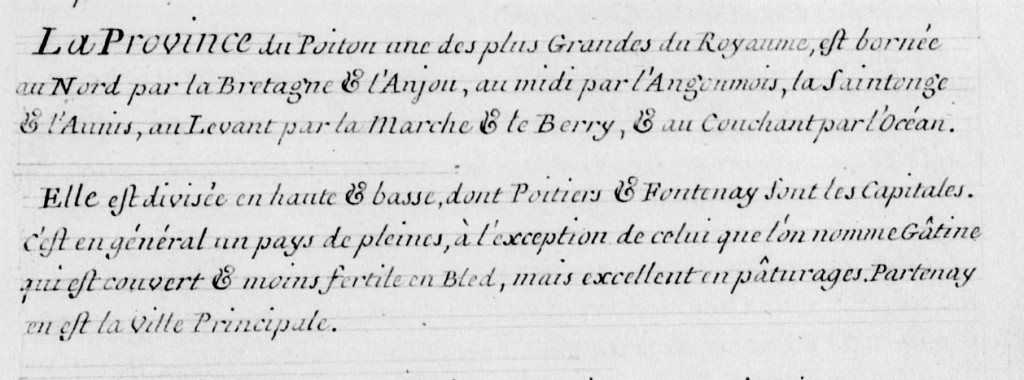 La Province du Poitou une des plus Grandes du Royaume, est bornée
au Nord par la Bretagne & l'Anjou, au midi par l'Angoumois, la Saintonge
& l'Aunis, au Levant par la Marche & le Berry, & au Couchant par l'Océan.
Elle est divisée en haute & basse, dont Poitiers & Fontenay sont les Capitales.
C'est en général un pays de pleines, à l'exception de celui que l'on nomme Gâtine
qui est couvert & moins fertile en Bled, mais excellent en pâturages. Partenay
en est la Ville Principale.